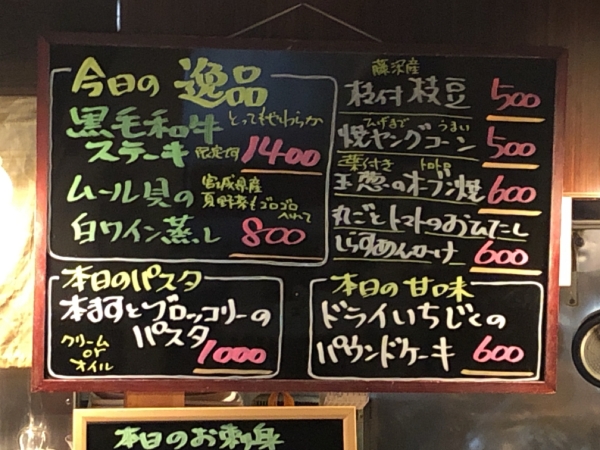 今日の 逸品
黒毛和牛
とってもやわらか
ステーキ 限定 1400
ムール貝の
宮城県産
夏野菜もゴロゴロ
入れて
白ワイン蒸し 800
本日のパスタ
本ますとブロッコリーの
パスタ
クリーム
or
オイル
1000
藤沢産
枝付 枝豆 500
ひげまで うまい
焼ヤングコーン 500
葉付き トロトロ
玉葱のオーブン焼 600
丸ごとトマトのおひたし
しらすあんかけ 600
本日の甘味
ドライいちじくの
パウンドケーキ 600
本日のお刺身